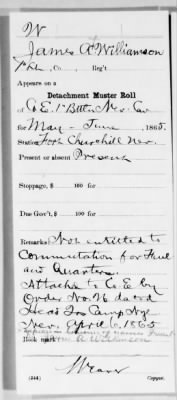 W
James A Williamson
Pvt., Co , Reg't
Appears on a
Detachment Muster Roll
of Co E. 1st Battn Nev. Cav
for May – June , 1865.
Station Fort Churchill Nev.
Present or absent Present
Stoppage, $ 100 for
Due Gov't, $ 100 for
Remarks: Not entitled to
Commutation for Fuel
and Quarters.
Attached to Co E by
Order No. 26 dated
Head Qrs Camp Nye
Nev. April 6, 1865
Book mark:
Weaver
(344) Copyist.